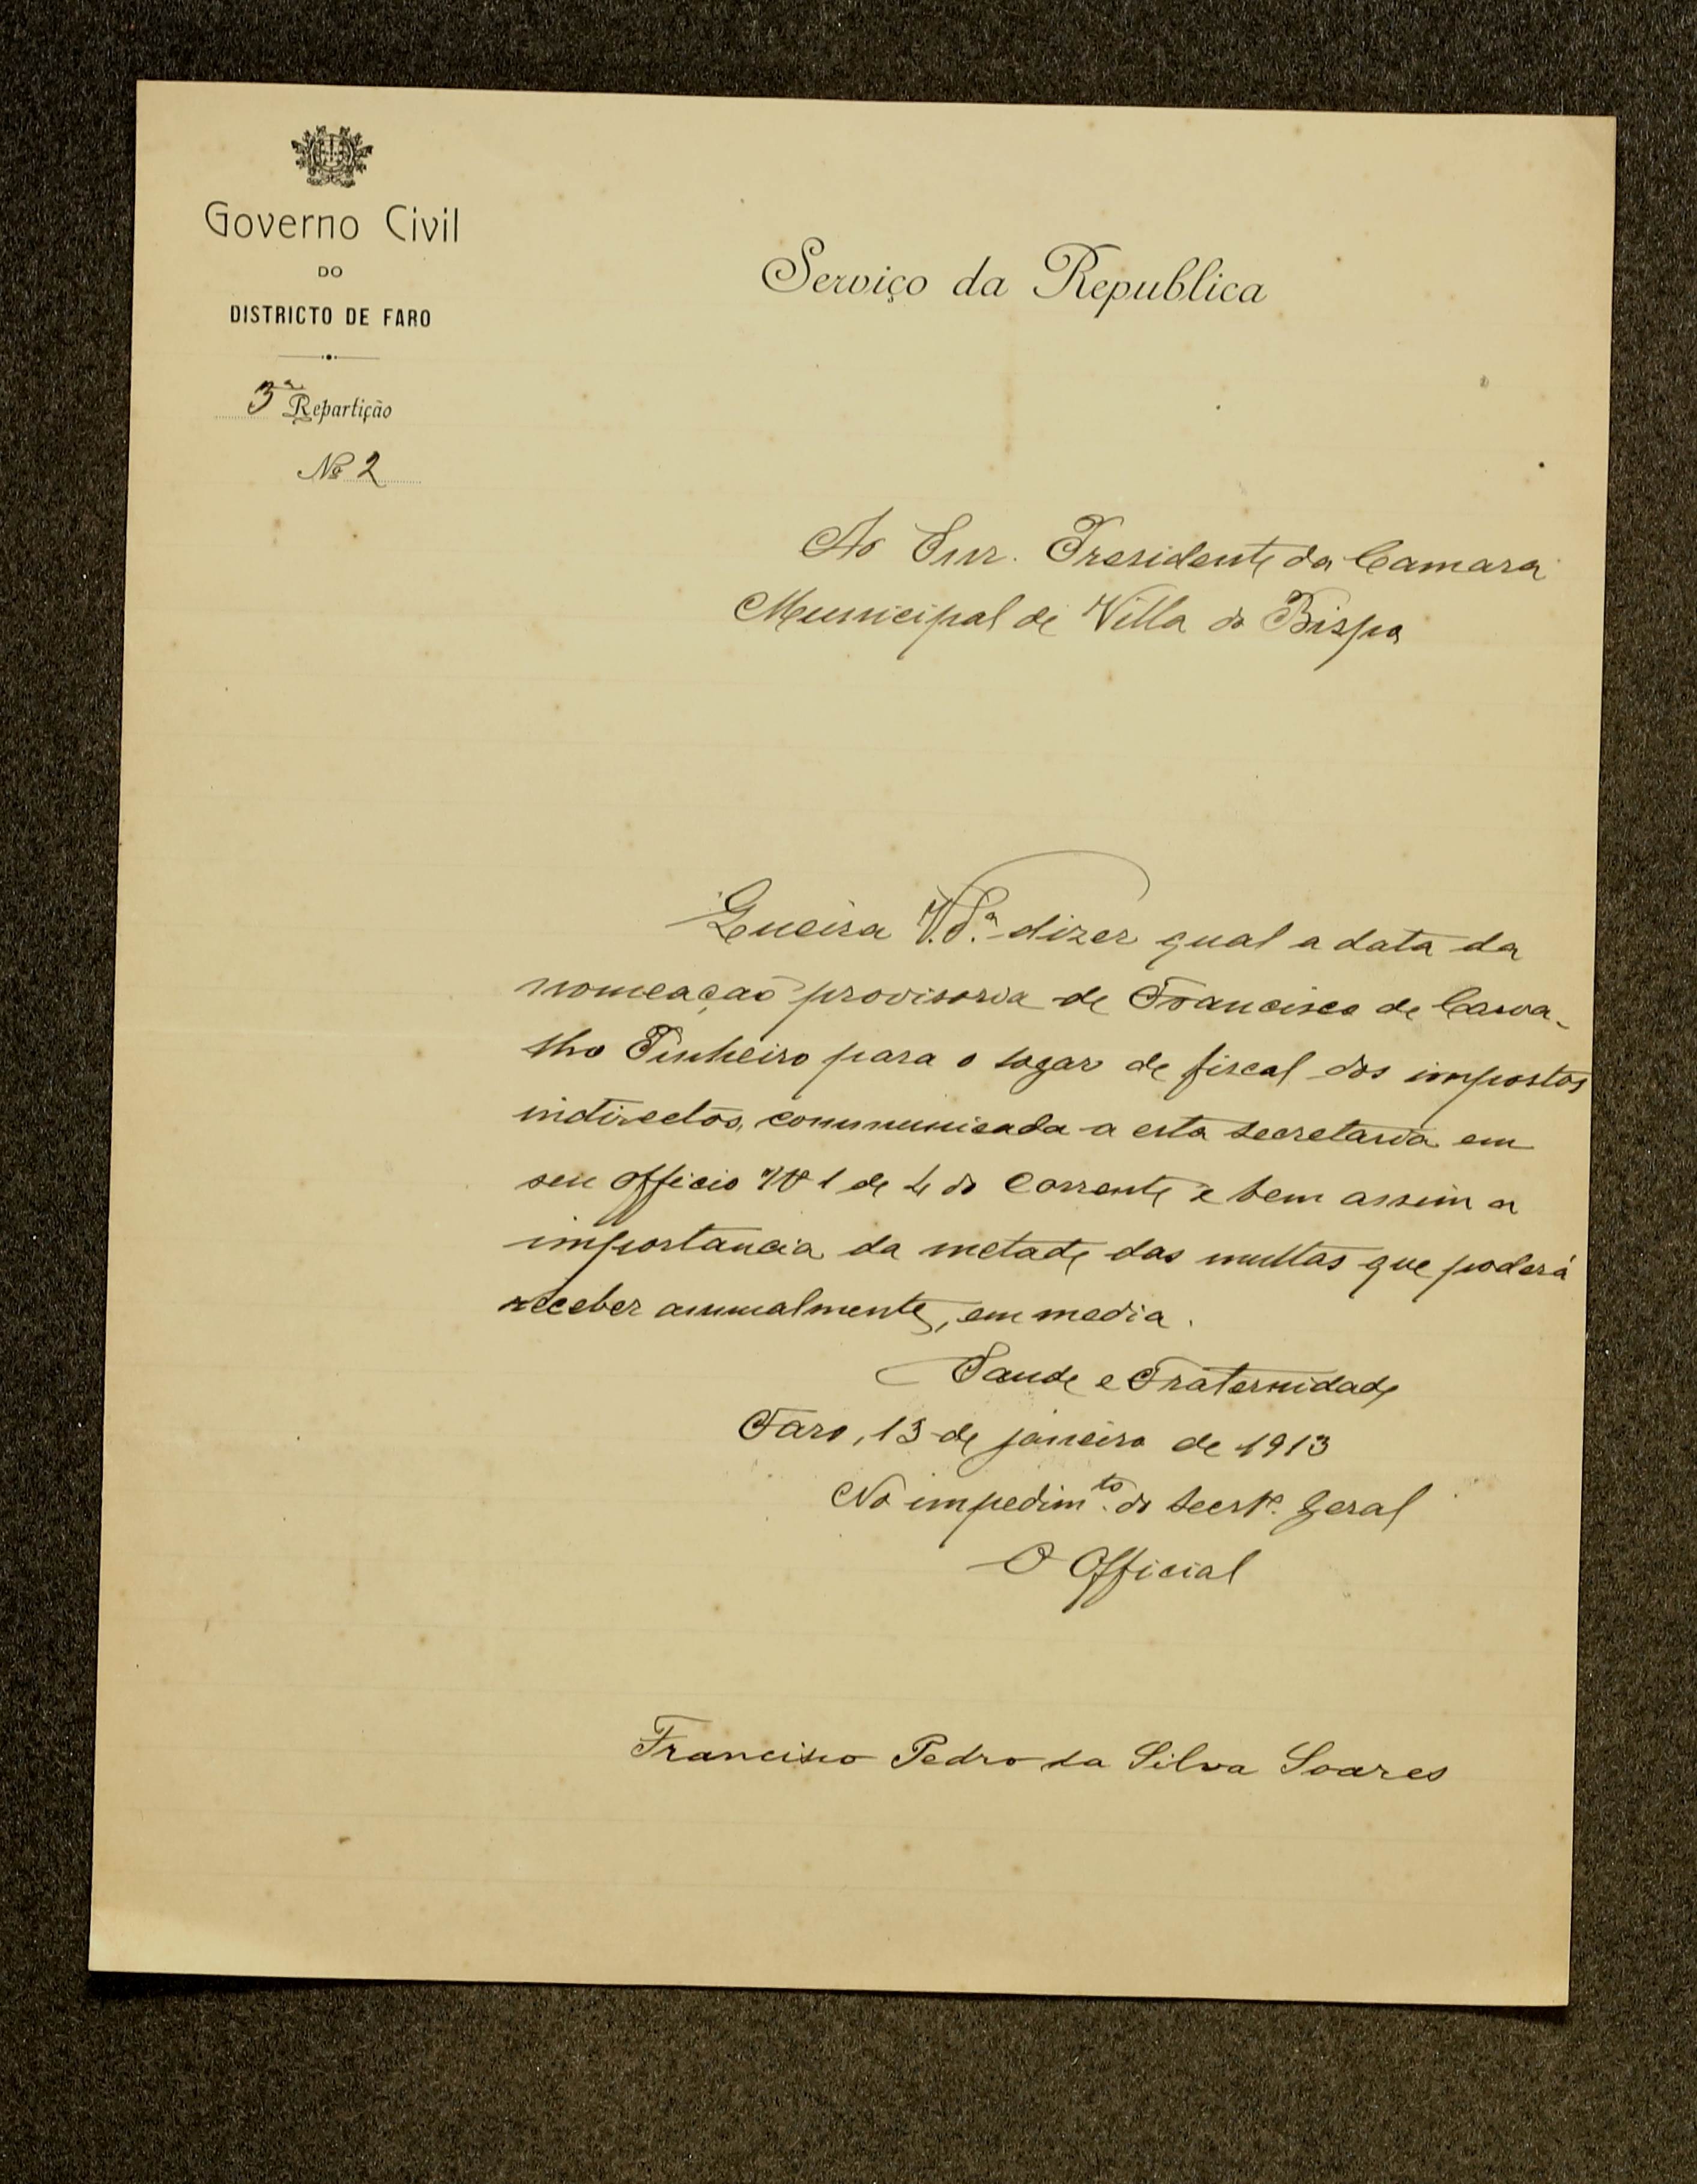 Governo Civil
DO
DISTRICTO DE FARO
3ª Repartição
Nº 2
Serviço da Republica
Ao Snr. Presidente da Camara
Municipal de Villa do Bispo
Queira V. S.ª dizer qual a data da
nomeação provisoria de Francisco de Carva-
lho Pinheiro para o logar de fiscal dos impostos
indirectos, communicada a esta secretaria em
seu officio Nº 1 de 4 do corrente e bem assim a
importancia da metade das multas que poderá
receber annualmente, em media.
Saude e Fraternidade
Faro, 13 de janeiro de 1913
No impedim.to do Secrt.º Geral
O Official
Francisco Pedro da Silva Soares